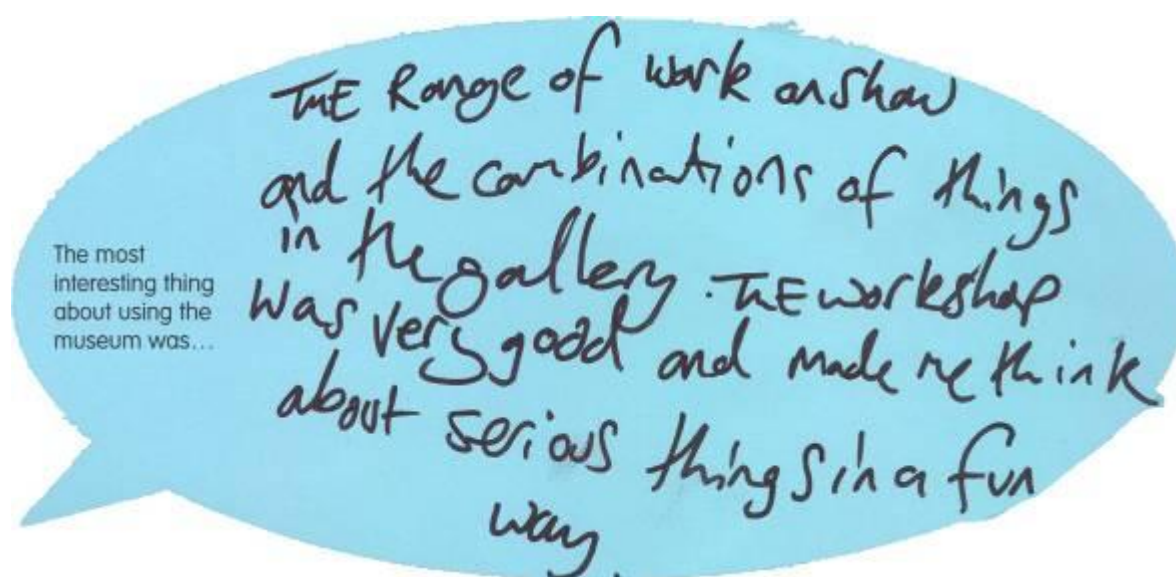 The most
interesting thing
about using the
museum was...
THE Range of work on show
and the combinations of things
in the gallery. THE workshop
was very good and made me think
about serious things in a fun
way.